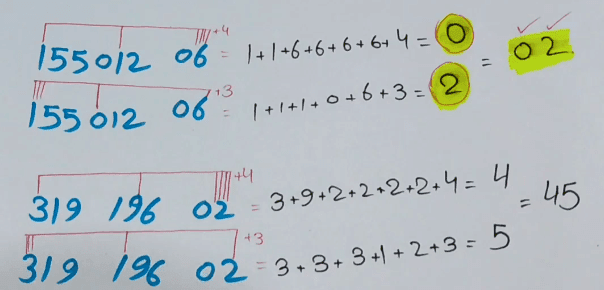 155 012 06 +4 = 1+1+6+6+6+6+4 = 0
155 012 06 +3 = 1+1+1+0+6+3 = 2
= 02
319 196 02 +4 = 3+9+2+2+2+2+4 = 4
319 196 02 +3 = 3+3+3+1+2+3 = 5
= 45